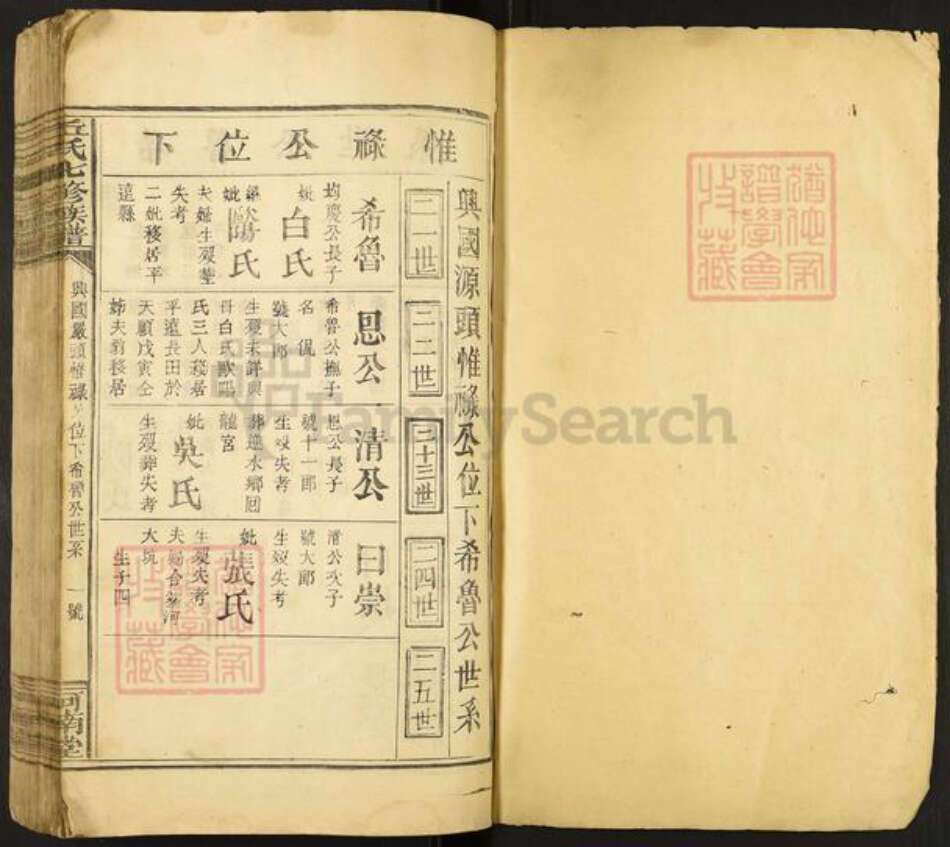 惟祿公位下
興國源頭惟祿公位下希魯公世系
二一世
二二世
二十三世
二四世
二五世
希魯
均慶公長子
妣白氏
繼妣歐陽氏
夫婦生歿塋
失考
二妣移居平
遠縣
思公
希魯公撫子
名侃
號大郎
生歿未詳與
母白氏歐陽
氏三人移居
平遠長田於
天順戊寅仝
姊夫
移居
清公
思公長子
號十一郎
生歿失考
葬逆水鄉回
龍宮
妣吳氏
生歿葬失考
曰崇
清公次子
號大郎
生歿失考
妣張氏
生歿失考
夫婦合葬河
大坑
生子四
丘氏七修族譜
興國嚴頭惟祿公位下希魯公世系
一號
河南堂
FamilySearch